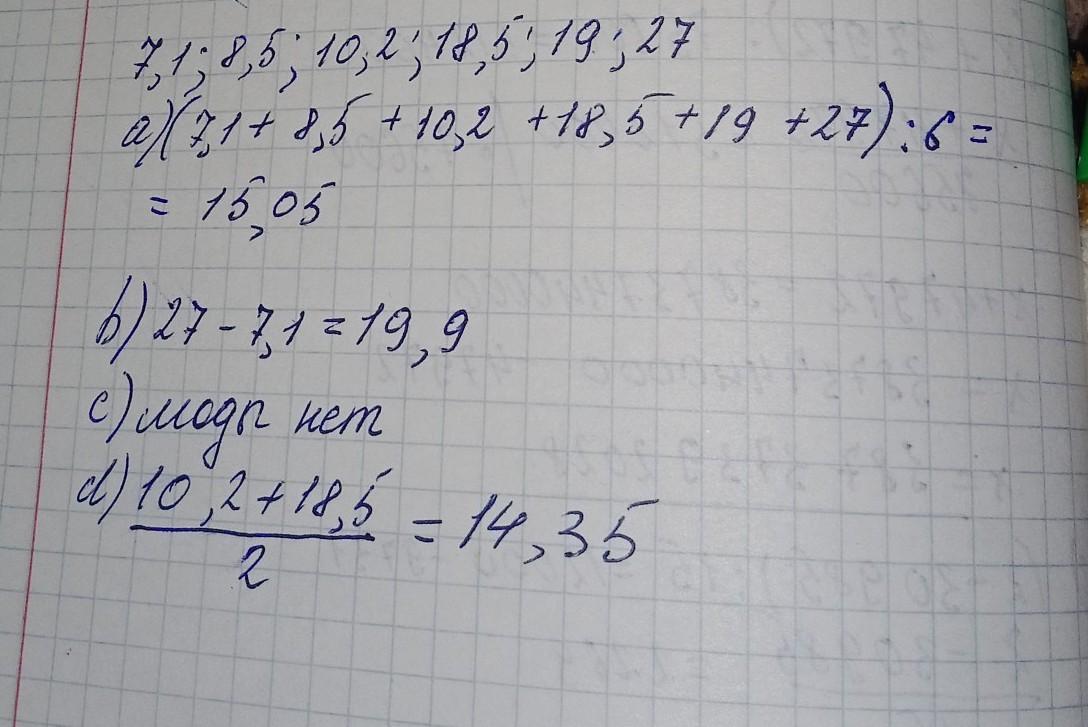 7,1; 8,5; 10,2; 18,5; 19; 27
a) (7,1 + 8,5 + 10,2 + 18,5 + 19 + 27) : 6 =
= 15,05
b) 27 - 7,1 = 19,9
c) моды нет
d) 10,2 + 18,5
2
= 14,35